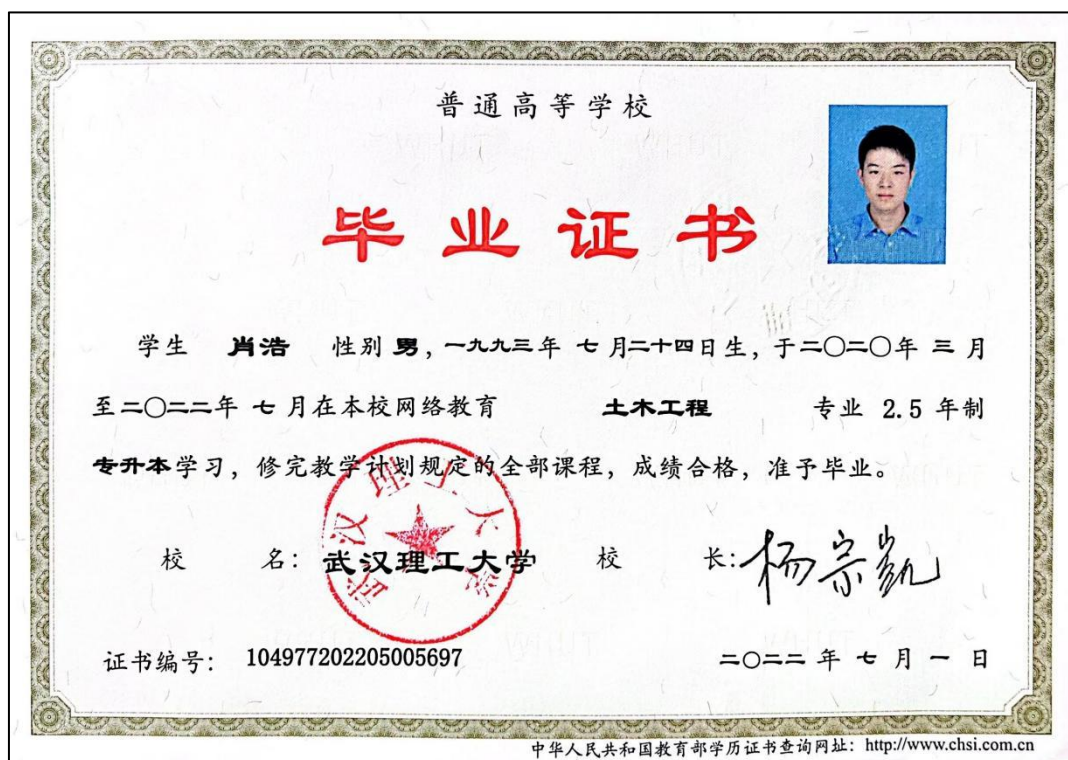 普通高等学校
毕业证书
学生 肖浩 性别 男，一九九三年 七月二十四日生，于二〇二〇年 三月
至二〇二二年 七月在本校网络教育 土木工程 专业 2.5 年制
专升本学习，修完教学计划规定的全部课程，成绩合格，准予毕业。
校 名：武汉理工大学 校 长：杨宗凯
武汉理工大学
证书编号：104977202205005697 二〇二二年七月一日
中华人民共和国教育部学历证书查询网址：http://www.chsi.com.cn